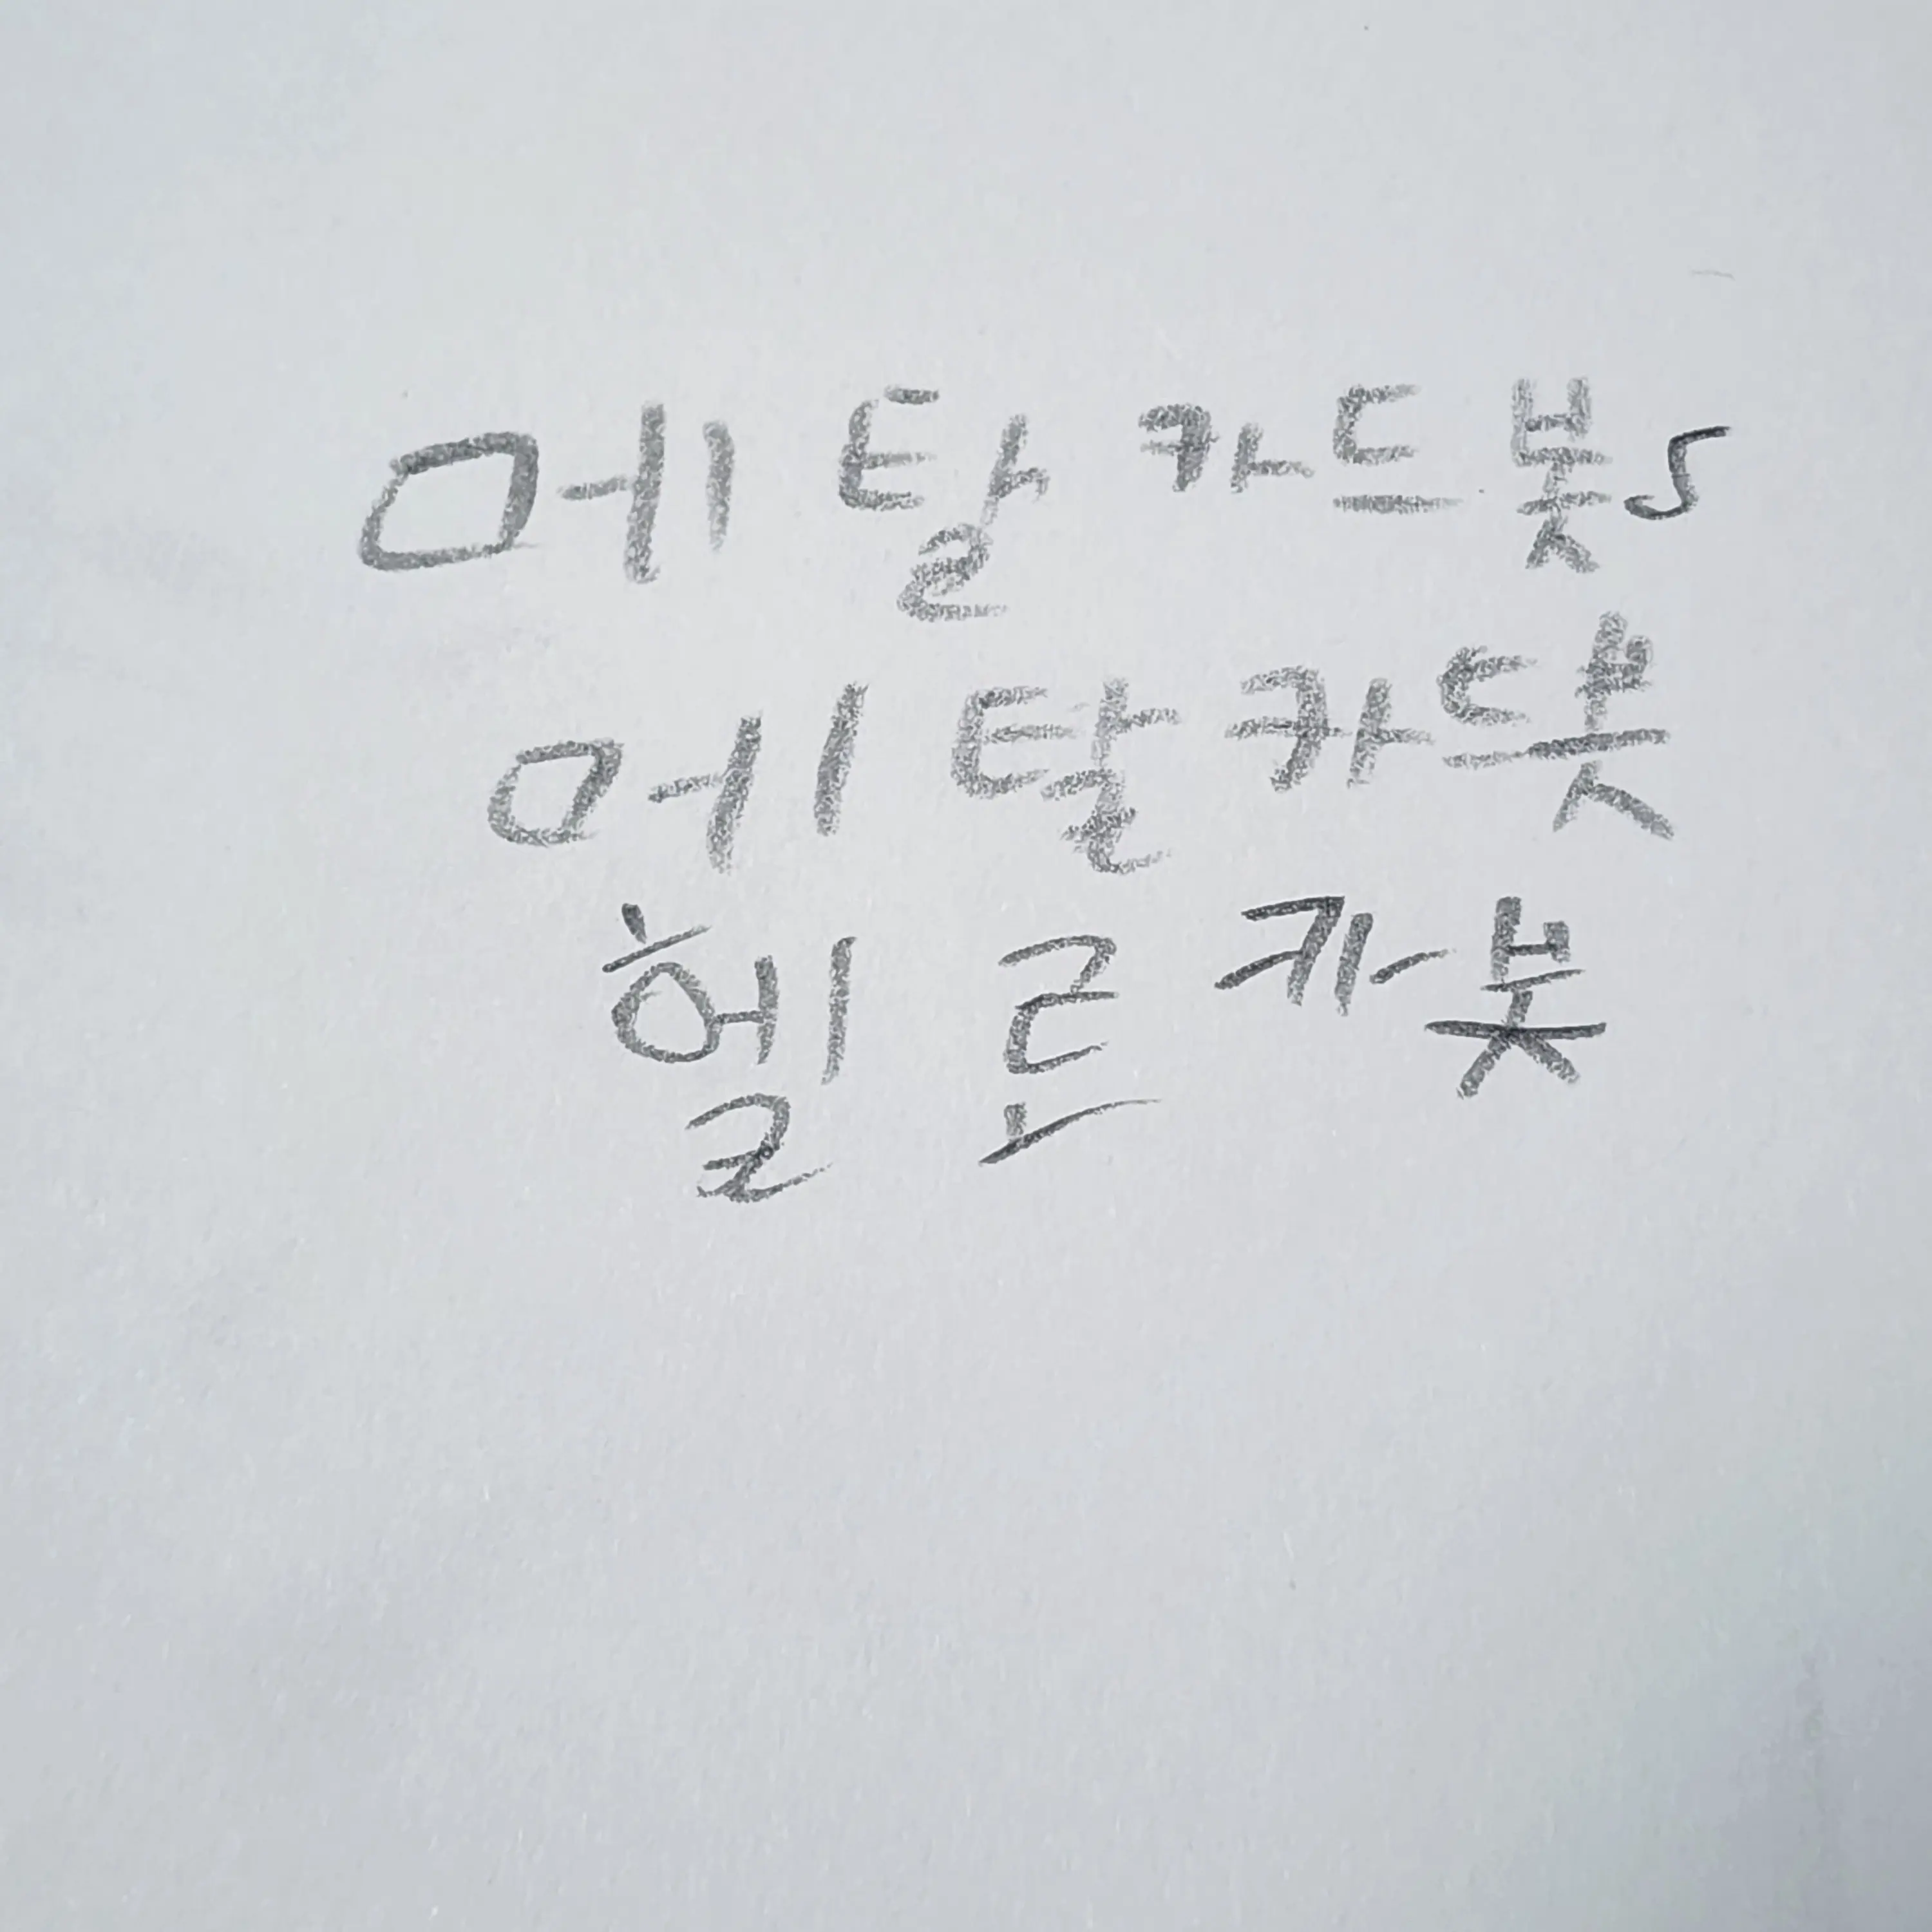 메탈카드봇s
메탈카드봇
헬로카봇